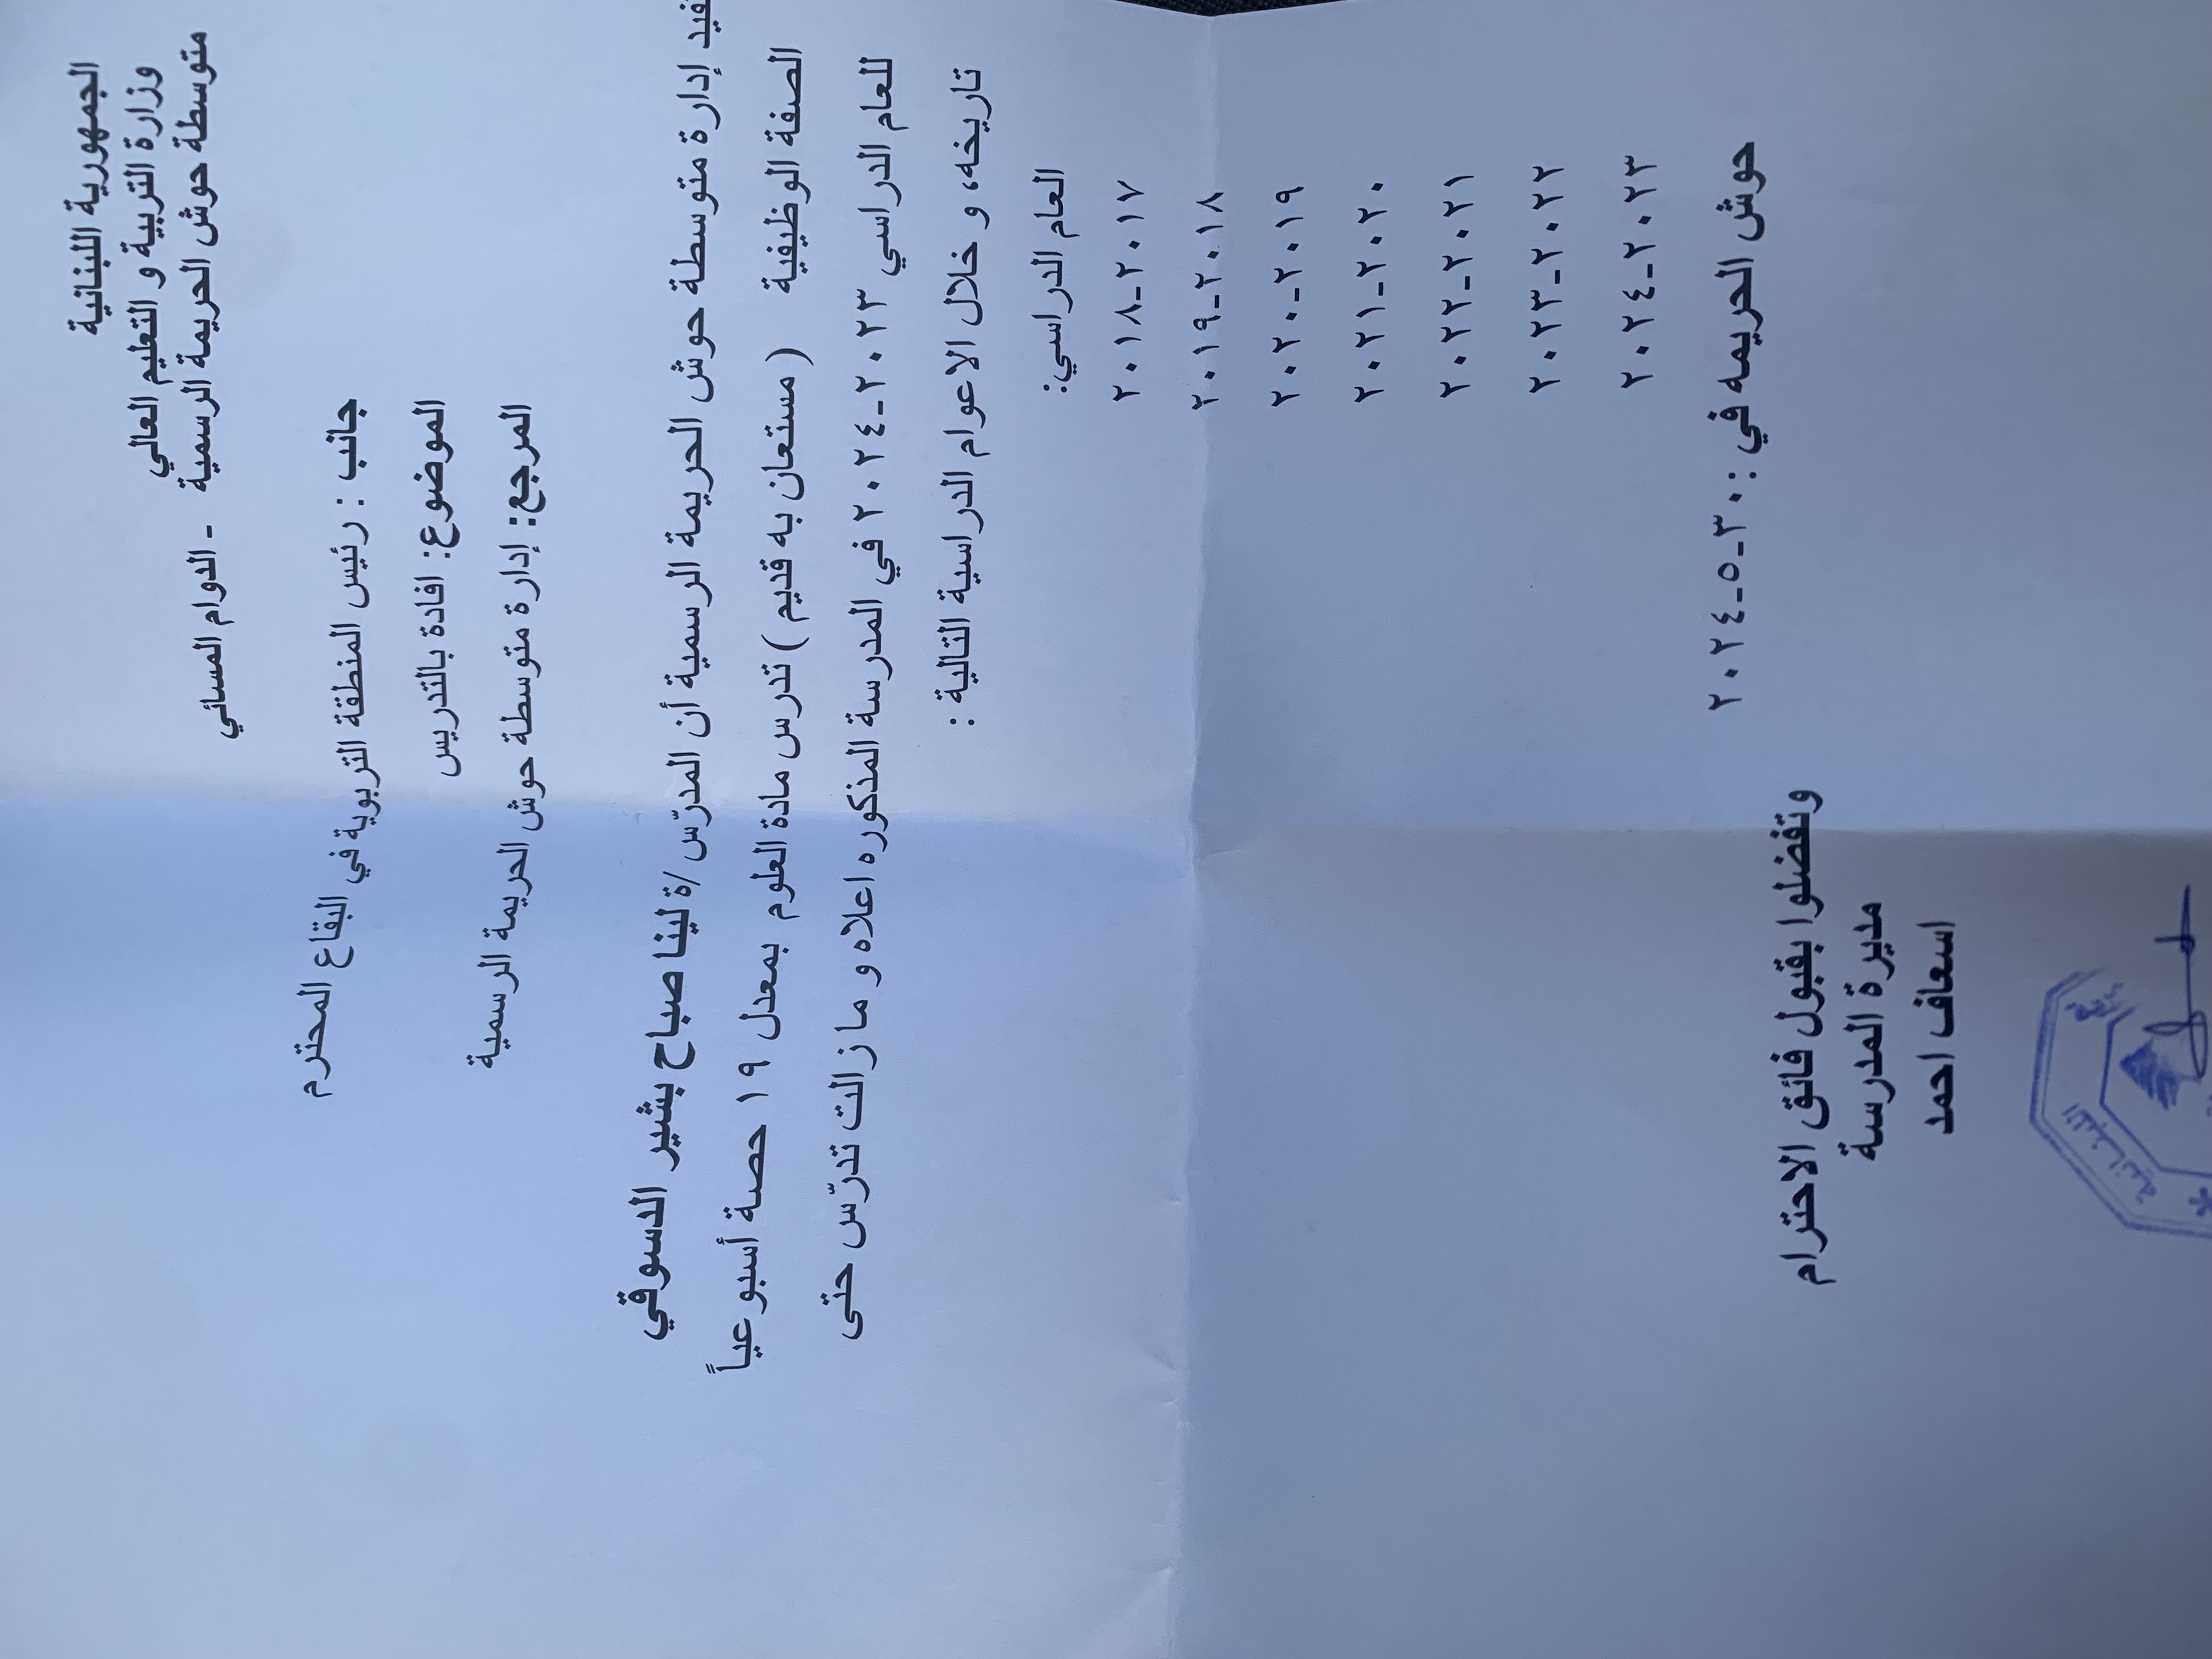 الجمهورية اللبنانية
وزارة التربية و التعليم العالي
متوسطة حوش الحريمة الرسمية - الدوام المسائي
جانب : رئيس المنطقة التربوية في البقاع المحترم
الموضوع: افادة بالتدريس
المرجع: إدارة متوسطة حوش الحريمة الرسمية
إدارة متوسطة حوش الحريمة الرسمية أن المدرّس/ة لينا صباح بشير الدسوقي
الصفة الوظيفية ( مستعان به قديم ) تدرس مادة العلوم بمعدل ١٩ حصة أسبوعياً
للعام الدراسي ٢٠٢٣-٢٠٢٤ في المدرسة المذكوره اعلاه و ما زالت تدرّس حتى
تاريخه، و خلال الاعوام الدراسية التالية :
العام الدراسي:
٢٠١٧-٢٠١٨
٢٠١٨-٢٠١٩
٢٠١٩-٢٠٢٠
٢٠٢٠-٢٠٢١
٢٠٢١-٢٠٢٢
٢٠٢٢-٢٠٢٣
٢٠٢٣-٢٠٢٤
حوش الحريمه في : ٣٠-٥-٢٠٢٤
وتفضلوا بقبول فائق الاحترام
مديرة المدرسة
اسعاف احمد
اللبنانية